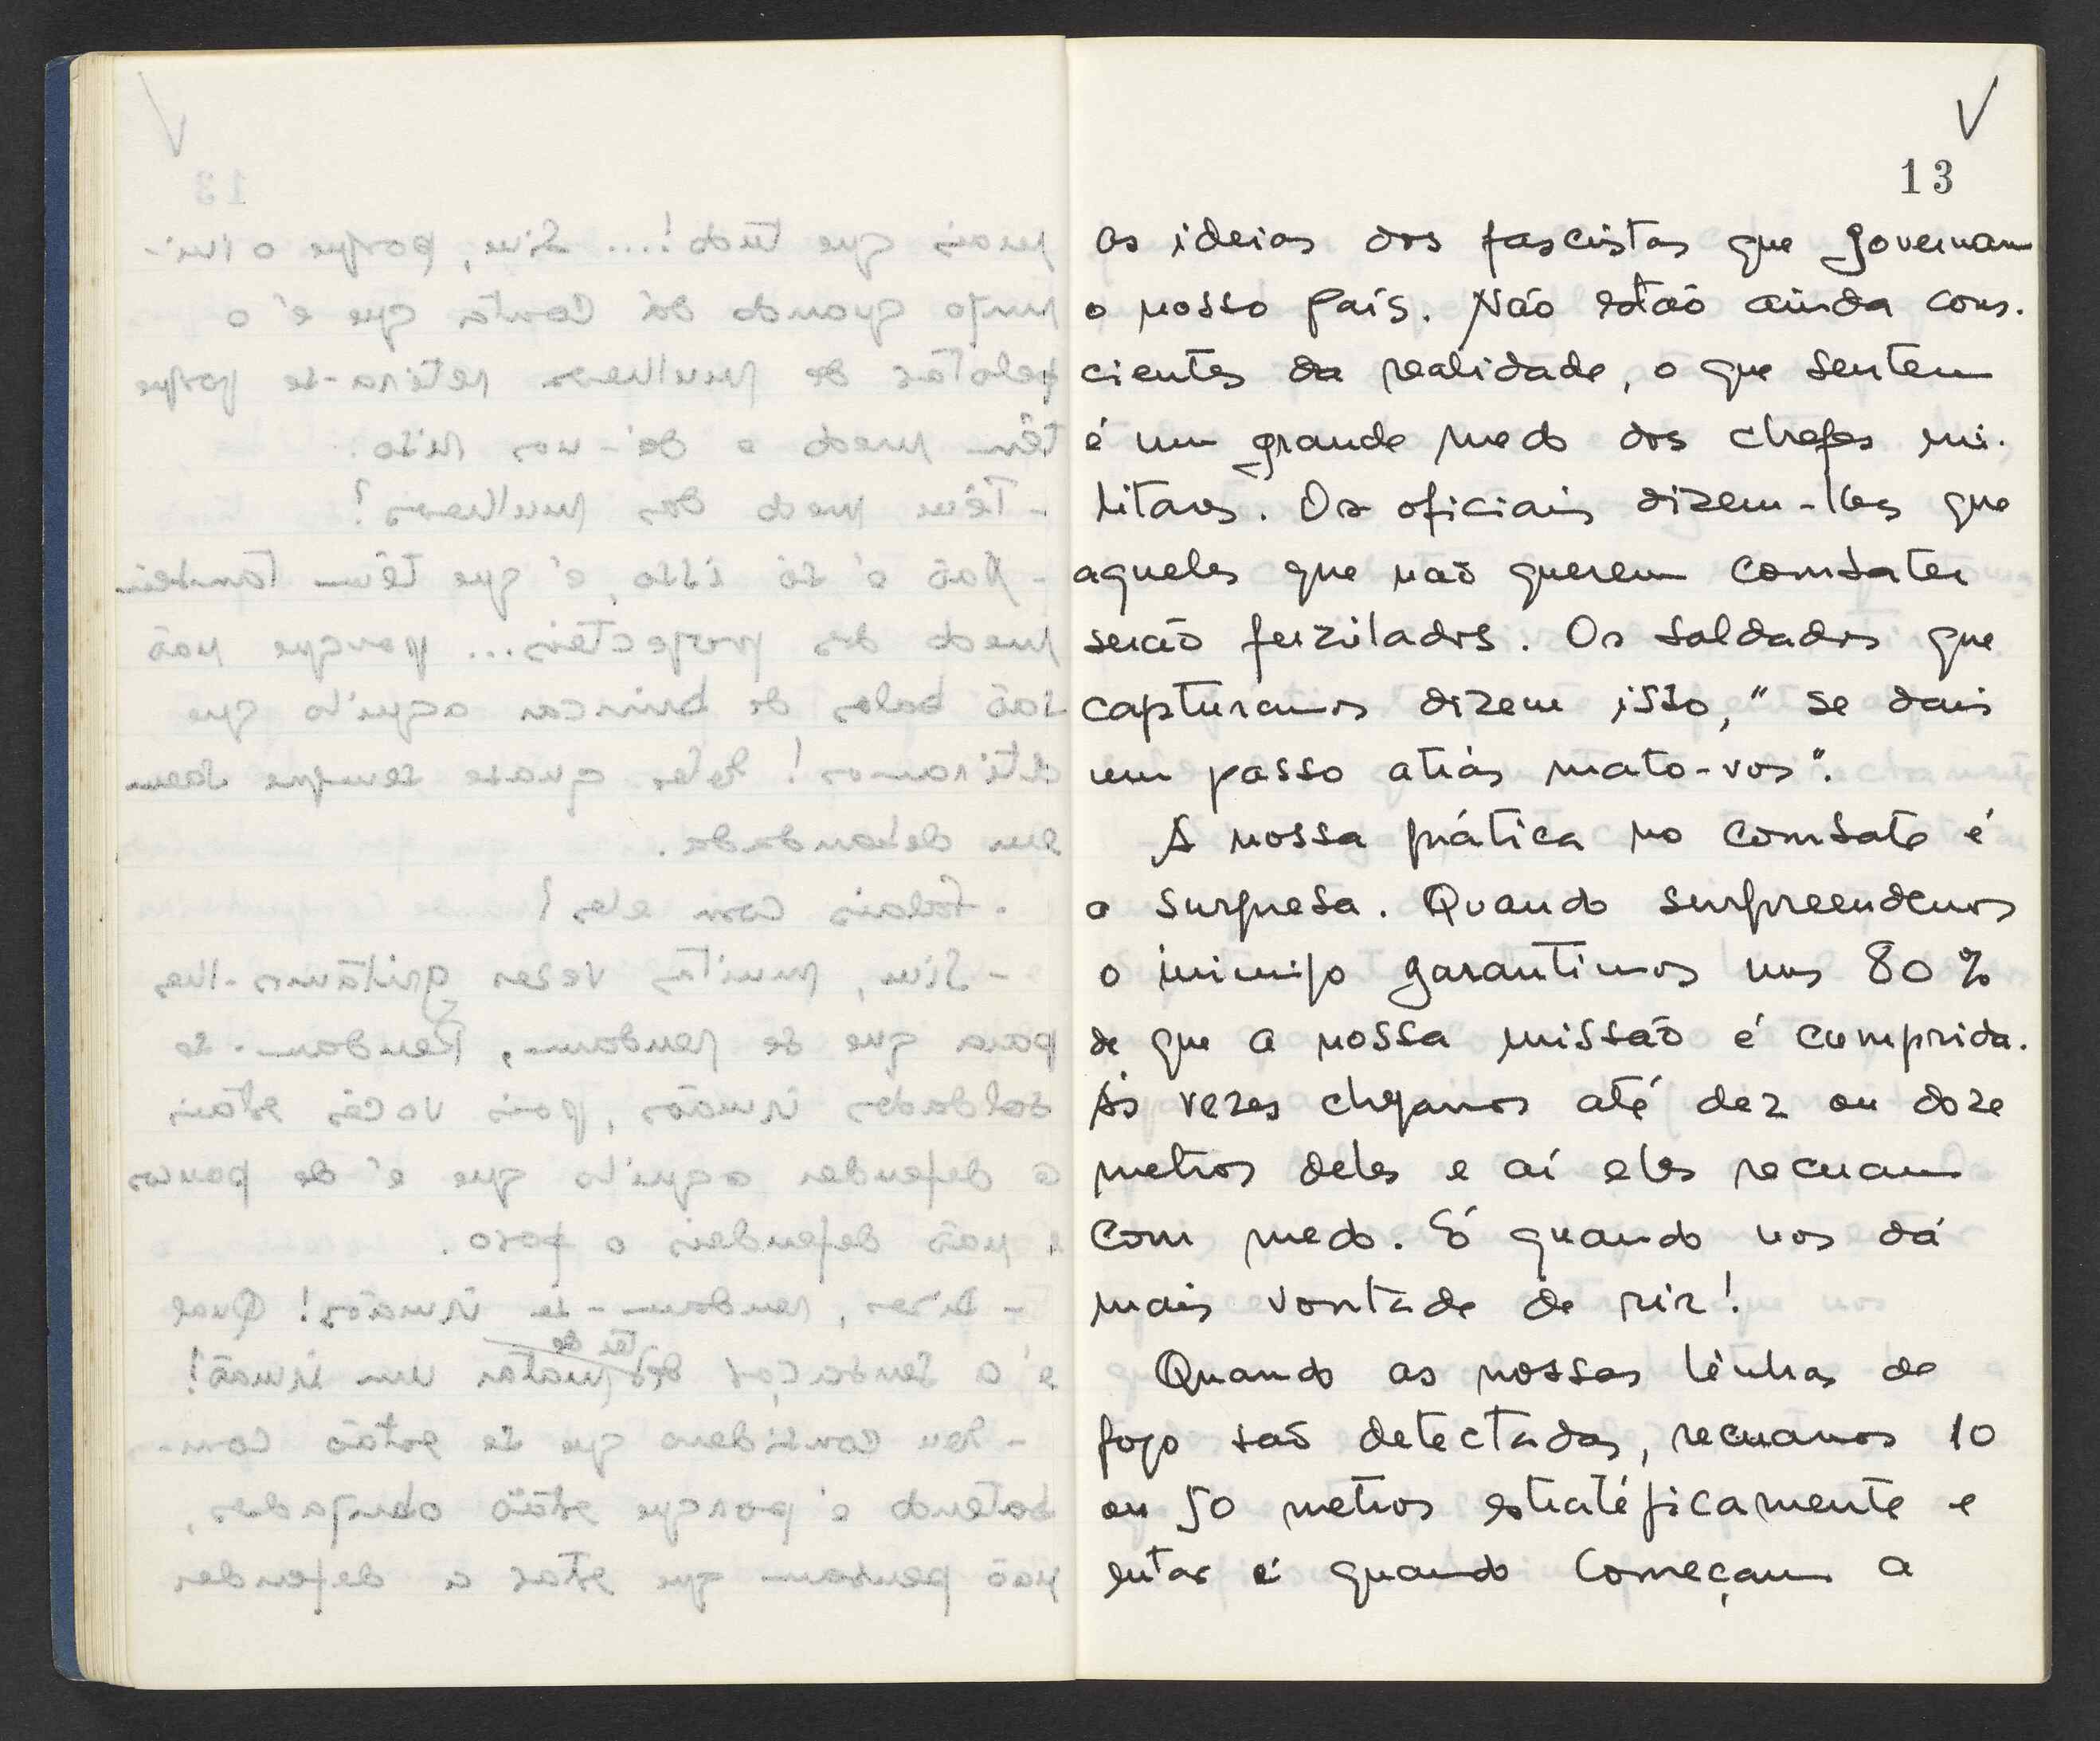 V
13
as ideias dos fascistas que governam
o nosso país. Não estão ainda cons-
cientes da realidade, o que sentem
é um grande medo dos chefes mi-
litares. Os oficiais dizem-lhes que
aqueles que não querem combater
serão fuzilados. Os soldados que
capturamos dizem isso, " se dais
um passo atrás mato-vos".
A nossa prática no combate é
a surpresa. Quando surpreendemos
o inimigo garantimos uns 80%
de que a nossa missão é cumprida.
Às vezes chegamos até dez ou doze
metros deles e aí eles recuam
com medo. É quando nos dá
mais vontade de rir!
Quando as nossas linhas de
fogo são detectadas, recuamos 10
ou 50 metros estratégicamente e
então é quando começam a